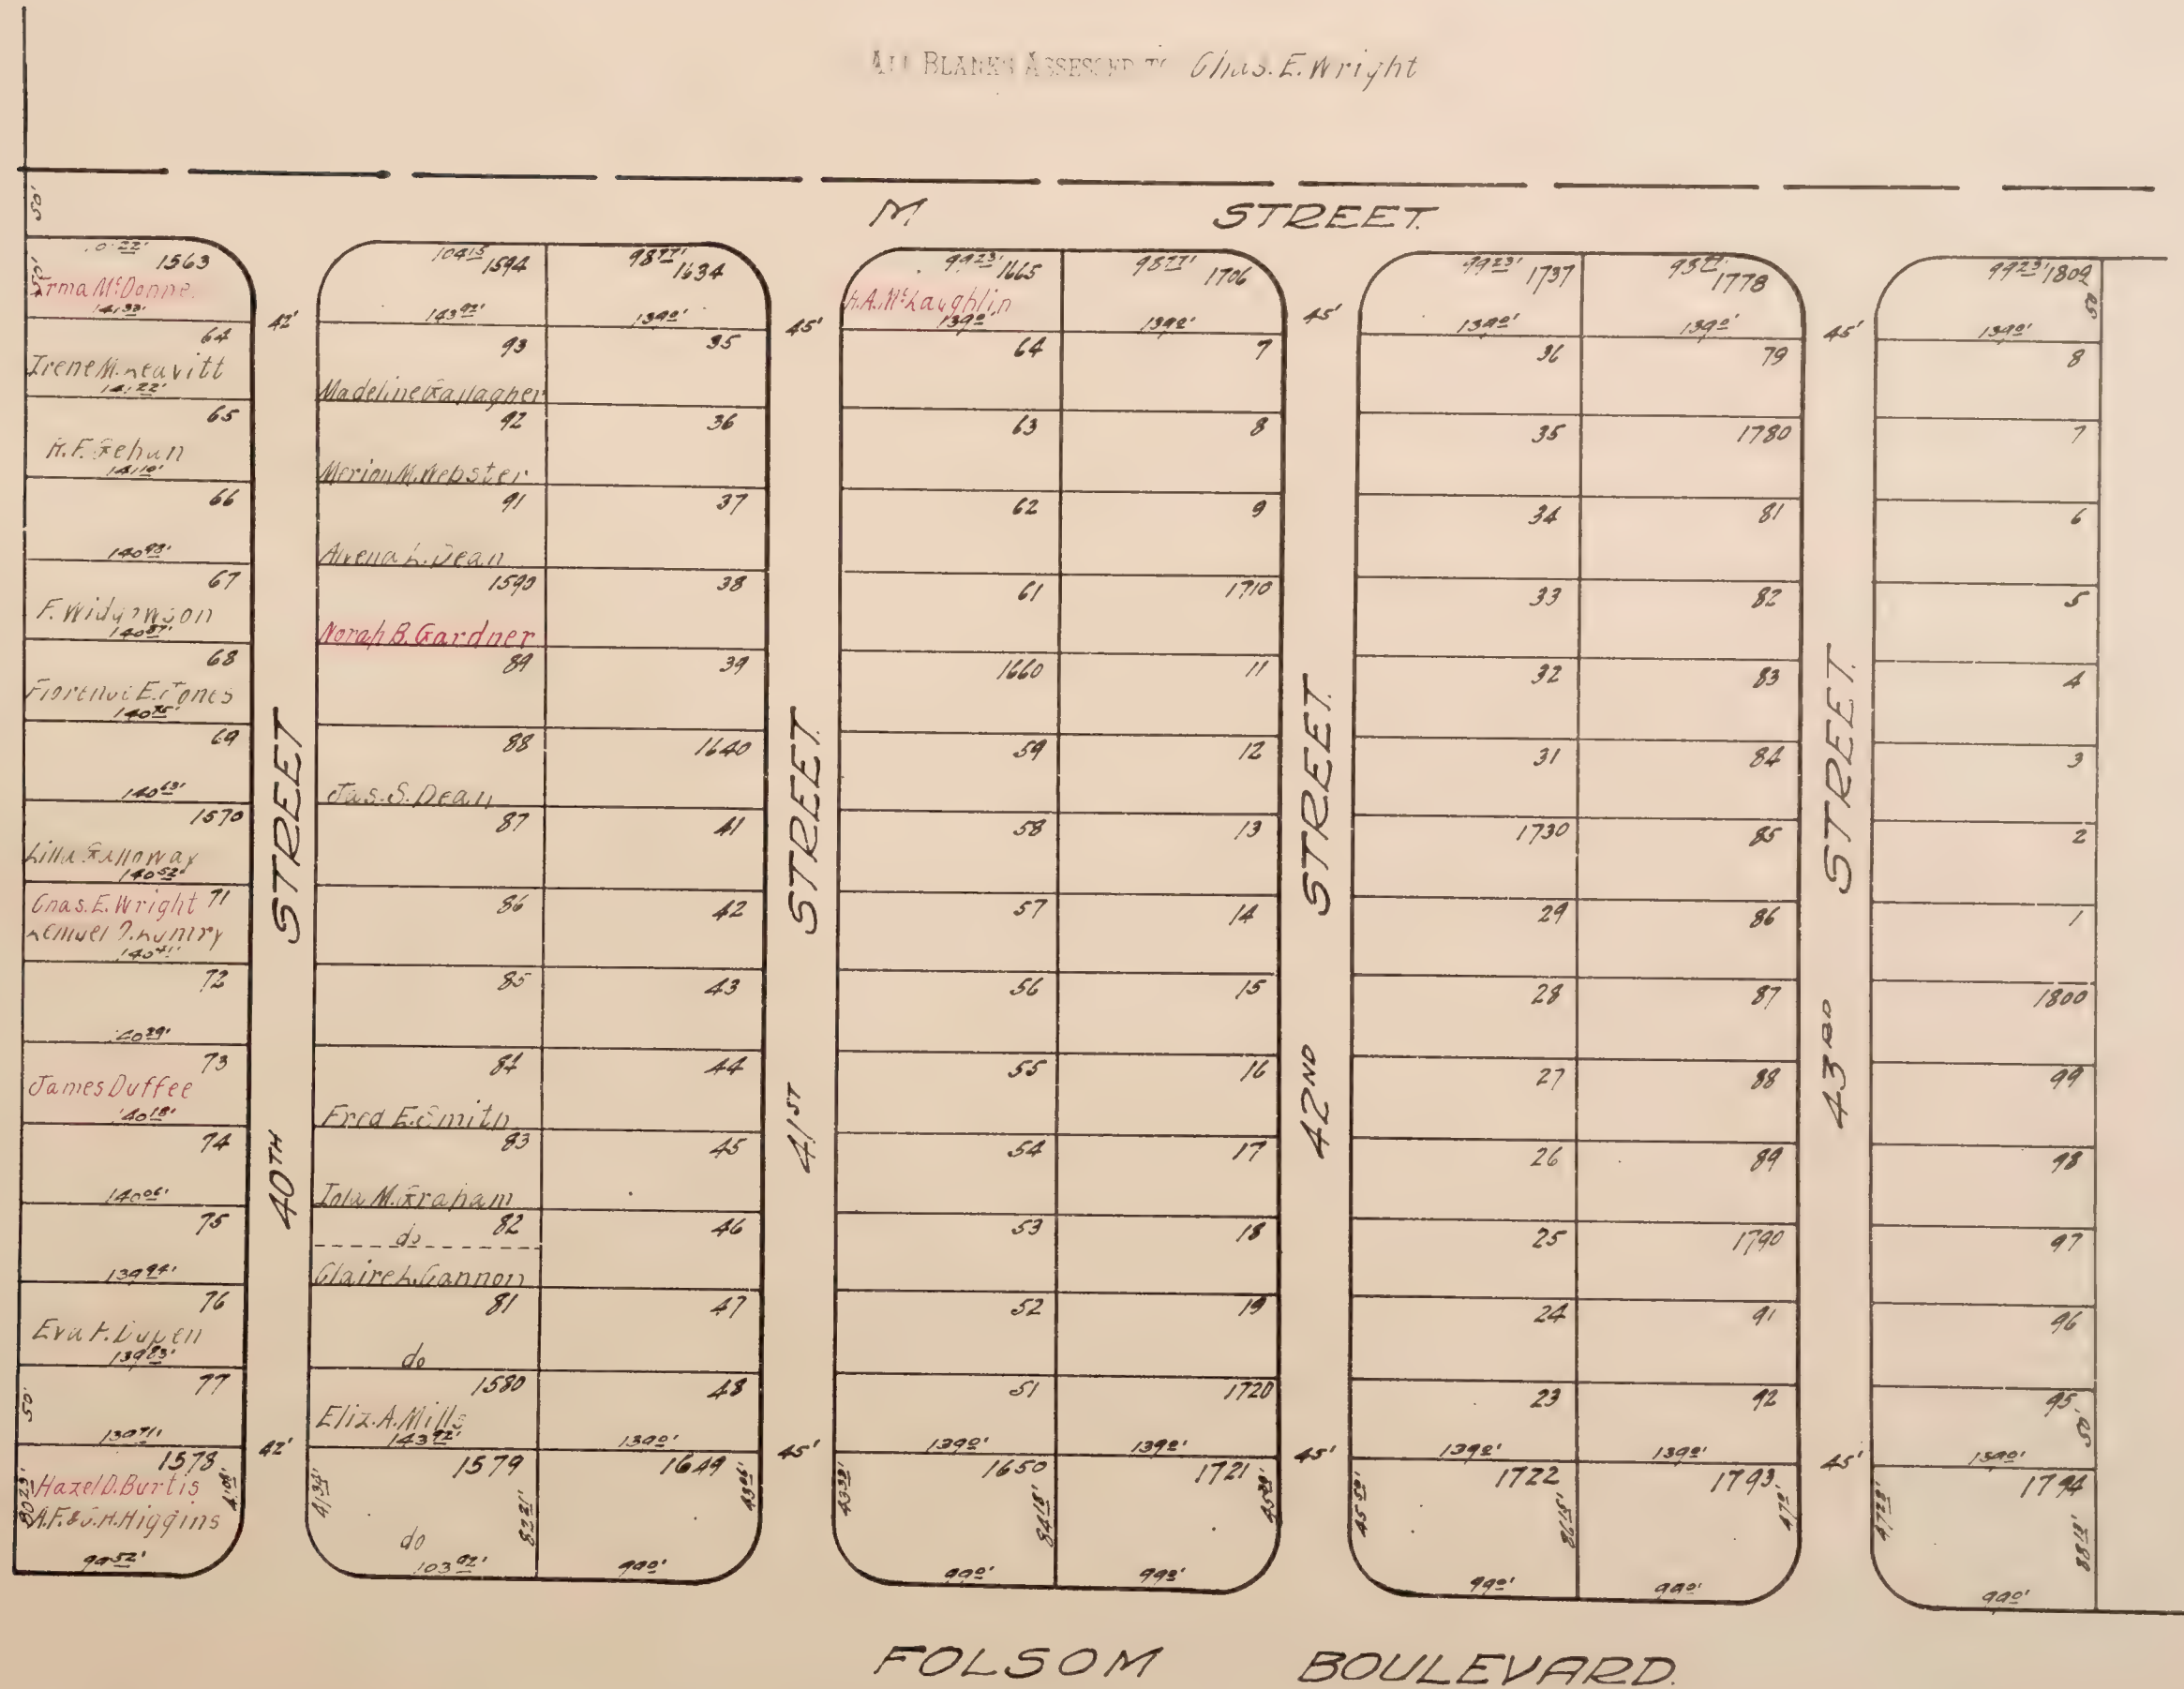 ALL BLANKS ASSESSED TO Chas. E. Wright
M STREET.
50'
1563
50'
Irma McDonne
141 33'
64
Irene M. Leavitt
141 22'
65
141 10'
66
140 98'
67
140 87'
68
Florence E. Jones
140 75'
69
140 63'
1570
Lilla Galloway
140 52'
Chas. E. Wright 71
140 41'
72
140 29'
73
James Duffee
140 18'
74
140 06'
75
139 94'
76
139 83'
77
50'
139 71'
1578
Hazel D. Burtis
A.F. & J.H. Higgins
80 23'
99 52'
42'
40TH STREET
42'
104 15'
1594
143 92'
93
Madeline Gallagher
92
Merion M. Webster
91
Alvena L. Dean
1590
Norah B. Gardner
89
88
Jas. S. Dean
87
86
85
84
Fred E. Smith
83
Iola M. Graham
82
do
Claire L. Cannon
81
do
1580
Eliz. A. Mills
143 92'
1579
41 34'
82 21'
do
103 92'
98 77'
1634
139 0'
35
36
37
38
39
1640
41
42
43
44
45
46
47
48
139 0'
1649
43 06'
99 0'
45'
41ST STREET.
45'
99 23'
1665
H.A. McLaughlin
139 0'
64
63
62
61
1660
59
58
57
56
55
54
53
52
51
139 0'
1650
43 39'
84 18'
99 0'
98 77'
1706
139 0'
7
8
9
1710
11
12
13
14
15
16
17
18
19
1720
139 0'
1721
99 0'
45'
42ND STREET.
45'
99 23'
1737
139 0'
36
35
34
33
32
31
1730
29
28
27
26
25
24
23
139 0'
1722
86 15'
99 0'
1778
139 0'
79
1780
81
82
83
84
85
86
87
88
89
1790
91
92
139 0'
1793
99 0'
45'
43RD STREET.
45'
99 23'
1809
50'
139 0'
8
7
6
5
4
3
2
1
1800
99
98
97
96
95
50'
139 0'
1794
99 0'
FOLSOM BOULEVARD.